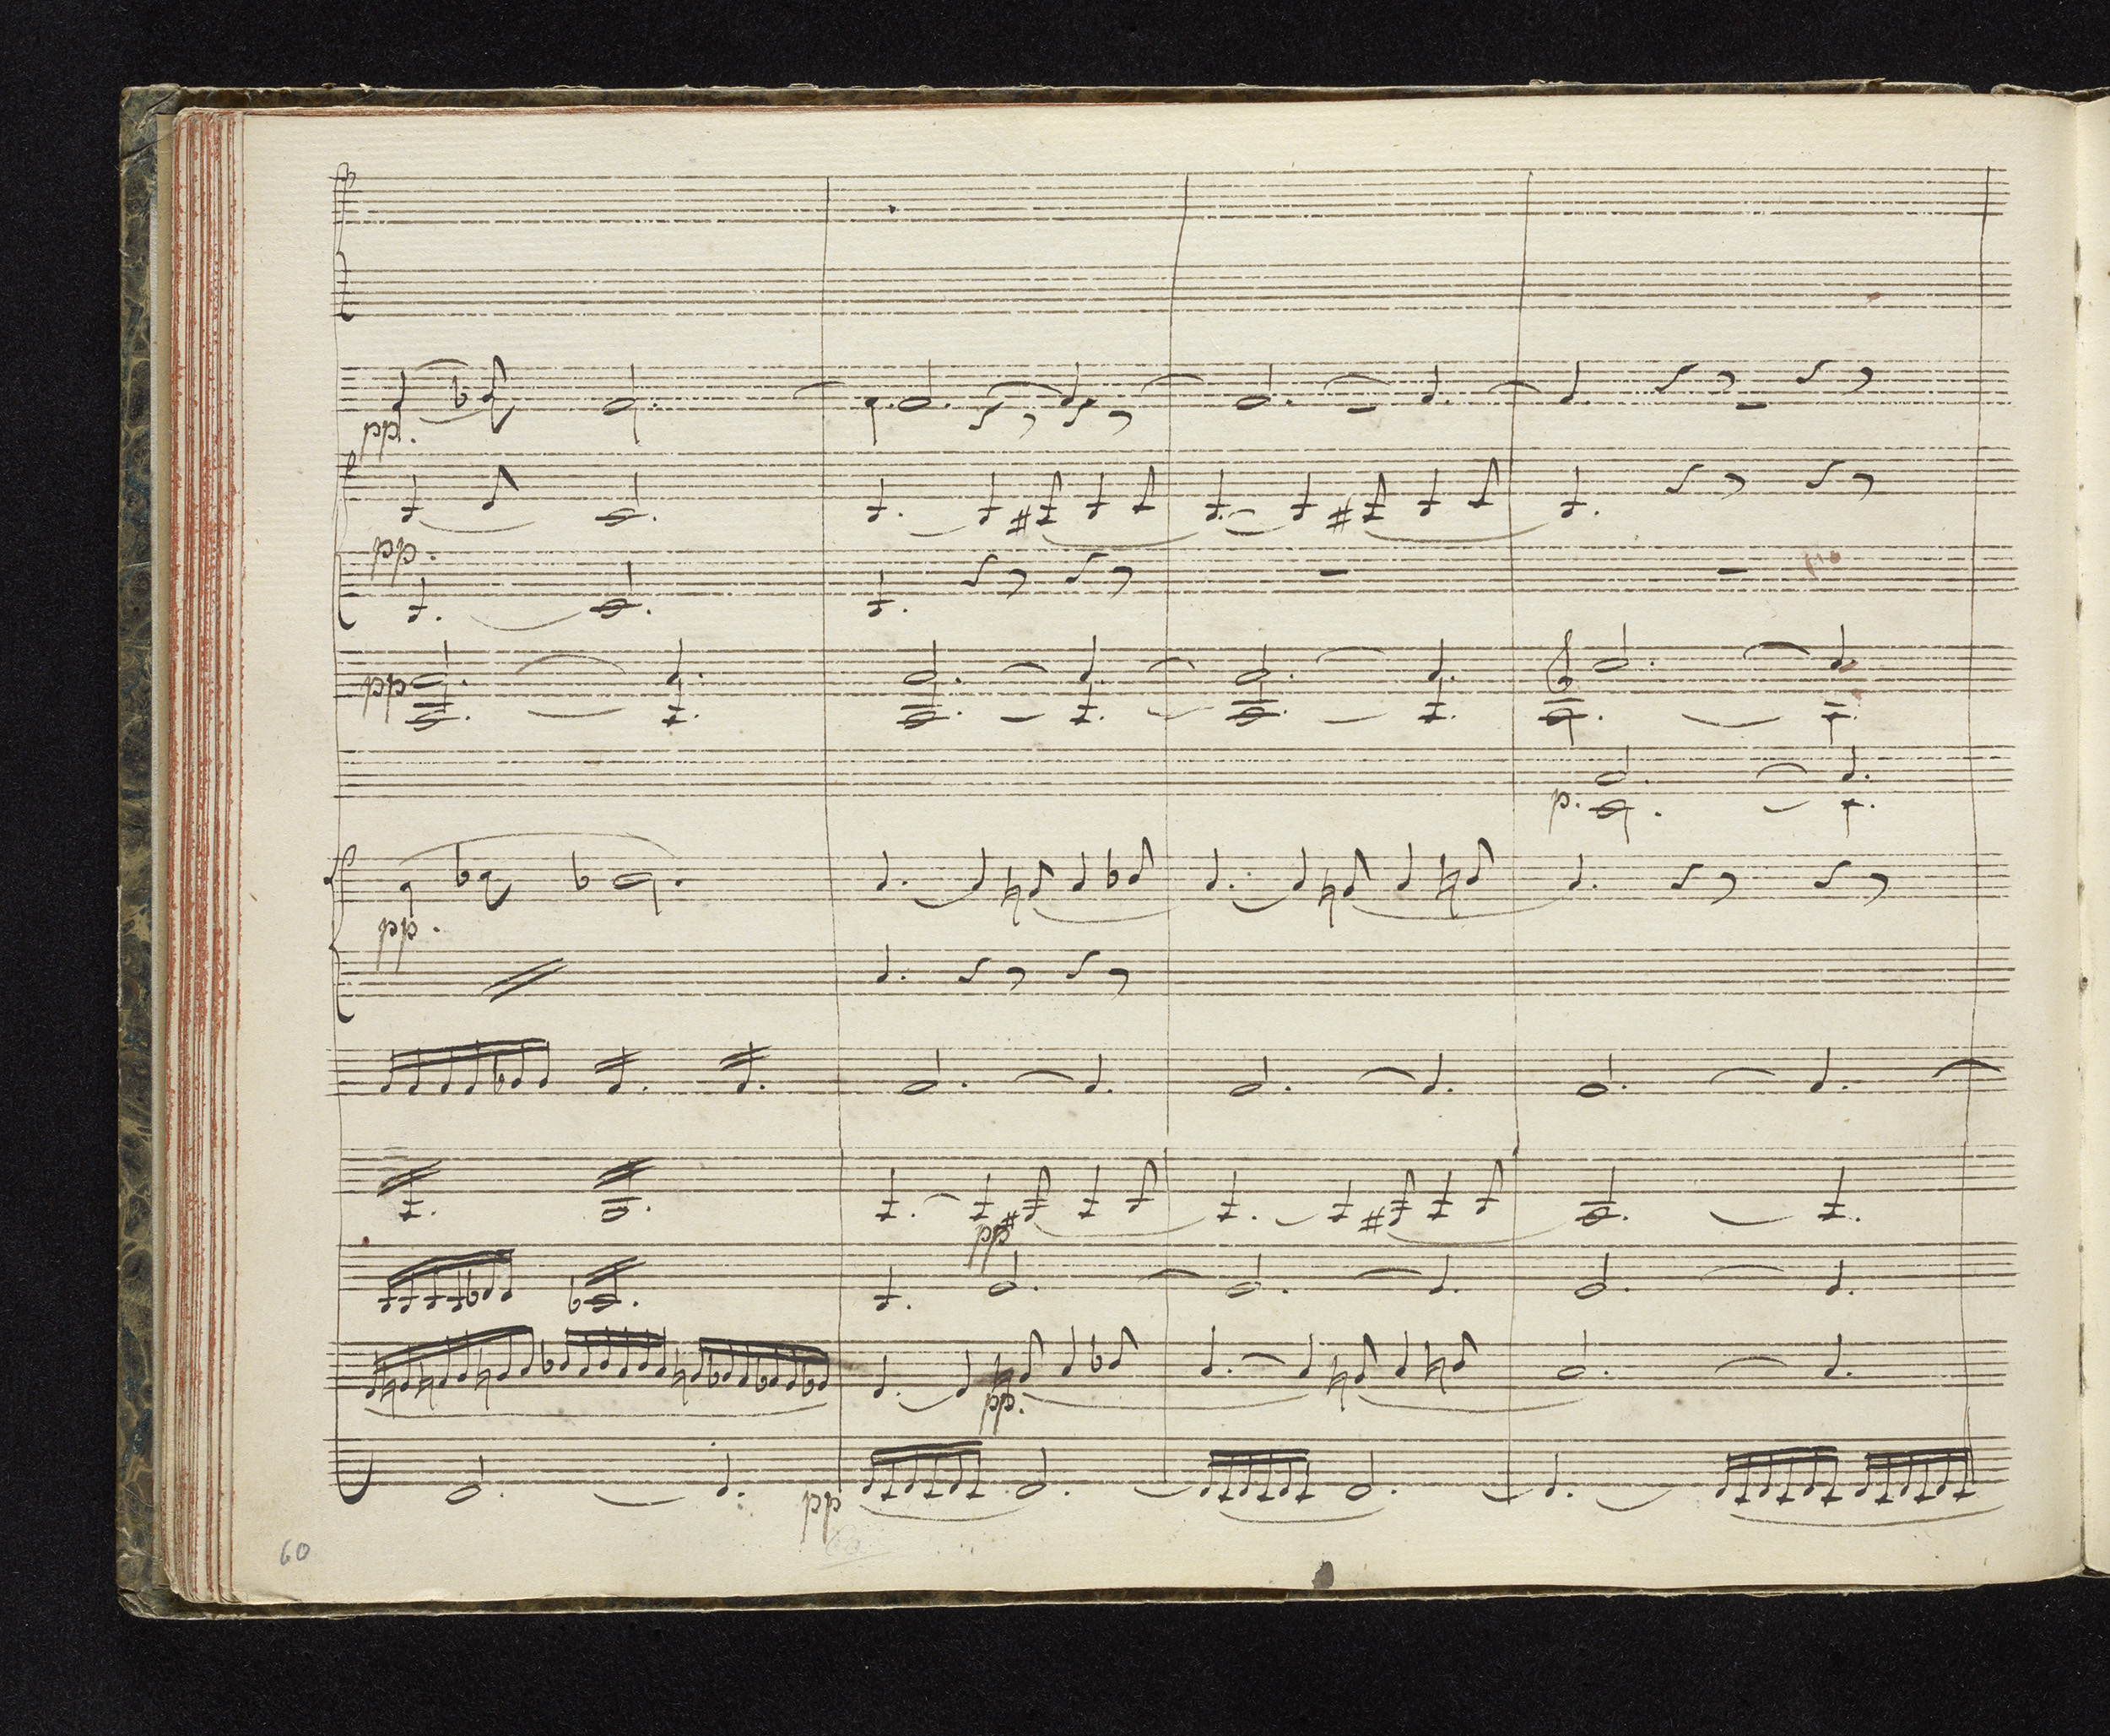 pp.
pp.
pp
p.
pp.
pp
pp.
pp
60